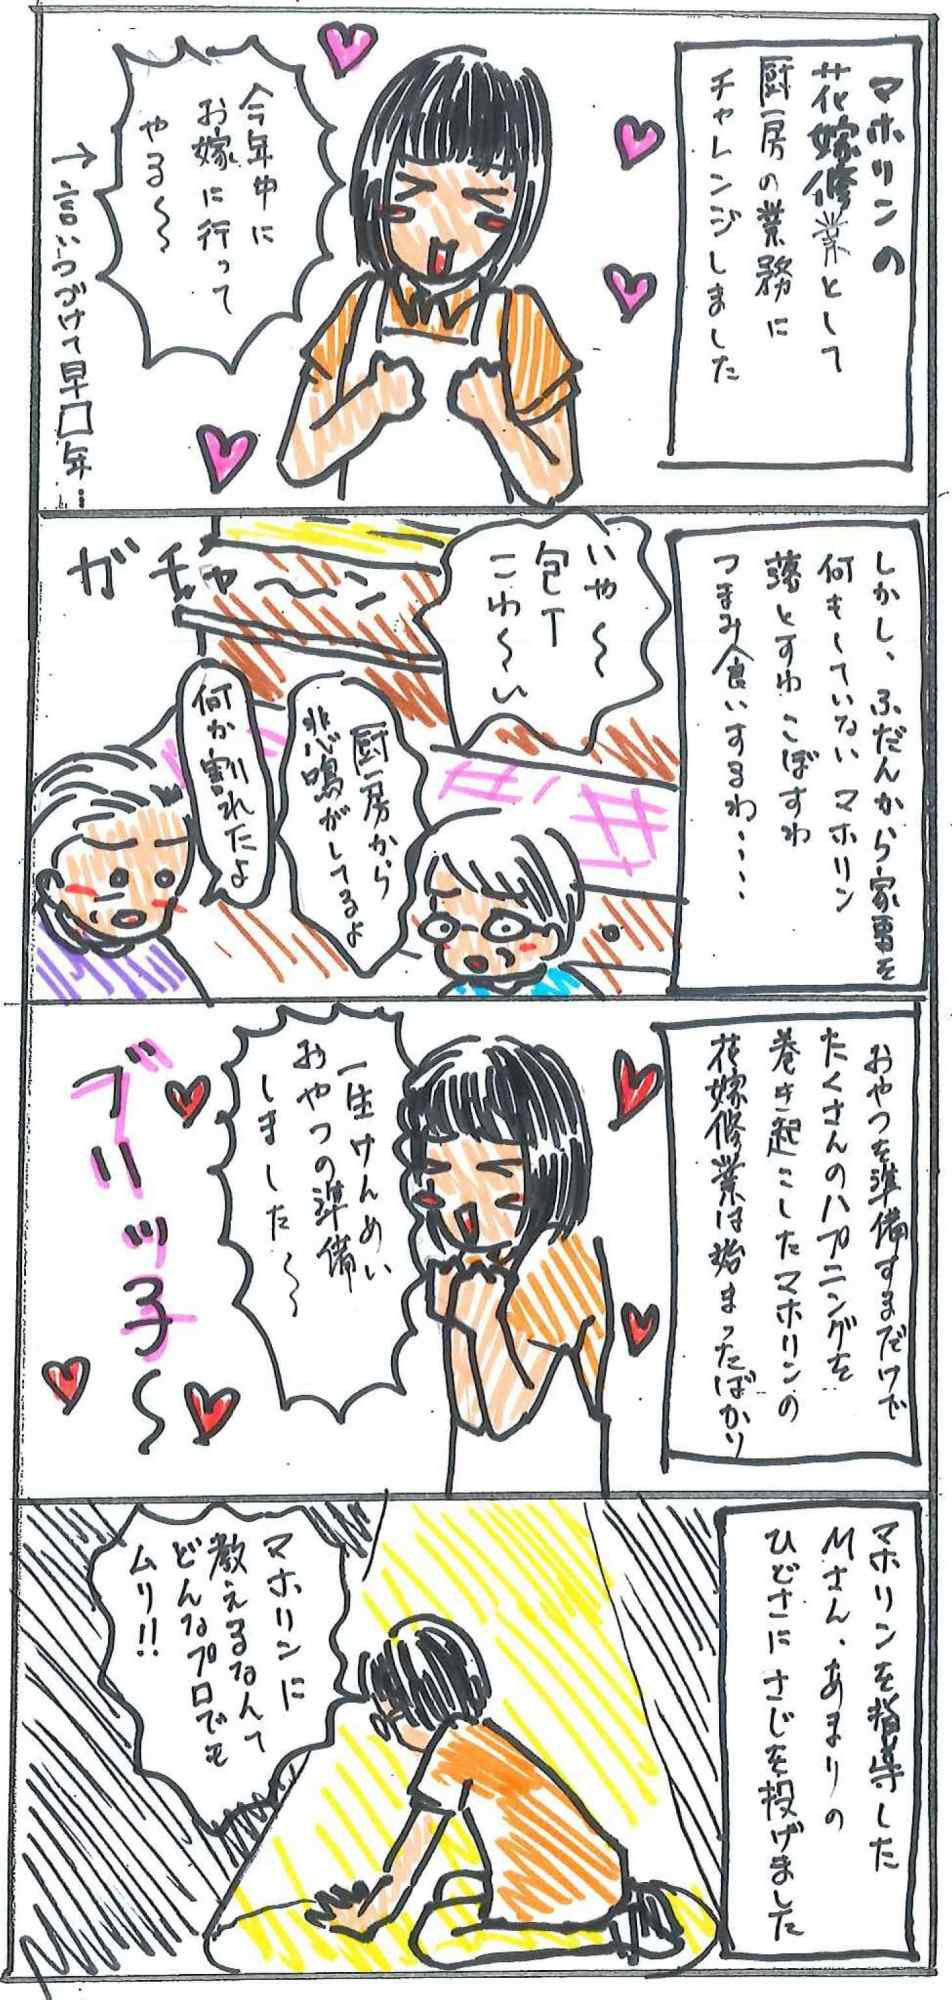 マホリンの
花嫁修業として
厨房の業務に
チャレンジしました
今年中に
お嫁に行って
やる〜
→言いつづけて早□年…
しかし、ふだんから家事を
何もしていないマホリン
落とすわこぼすわ
つまみ食いするわ・・・・
いや〜
包丁
こわ〜い
ガチャーン
厨房から
悲鳴がしてるよ
何か割れたよ
おやつを準備するだけで
たくさんのハプニングを
巻き起こしたマホリンの
花嫁修業は始まったばかり
一生けんめい
おやつの準備
しました〜
ブリッ子〜
マホリンを指導した
Mさん、あまりの
ひどさにさじを投げました
マホリンに
教えるなんて
どんなプロでも
ムリ!!